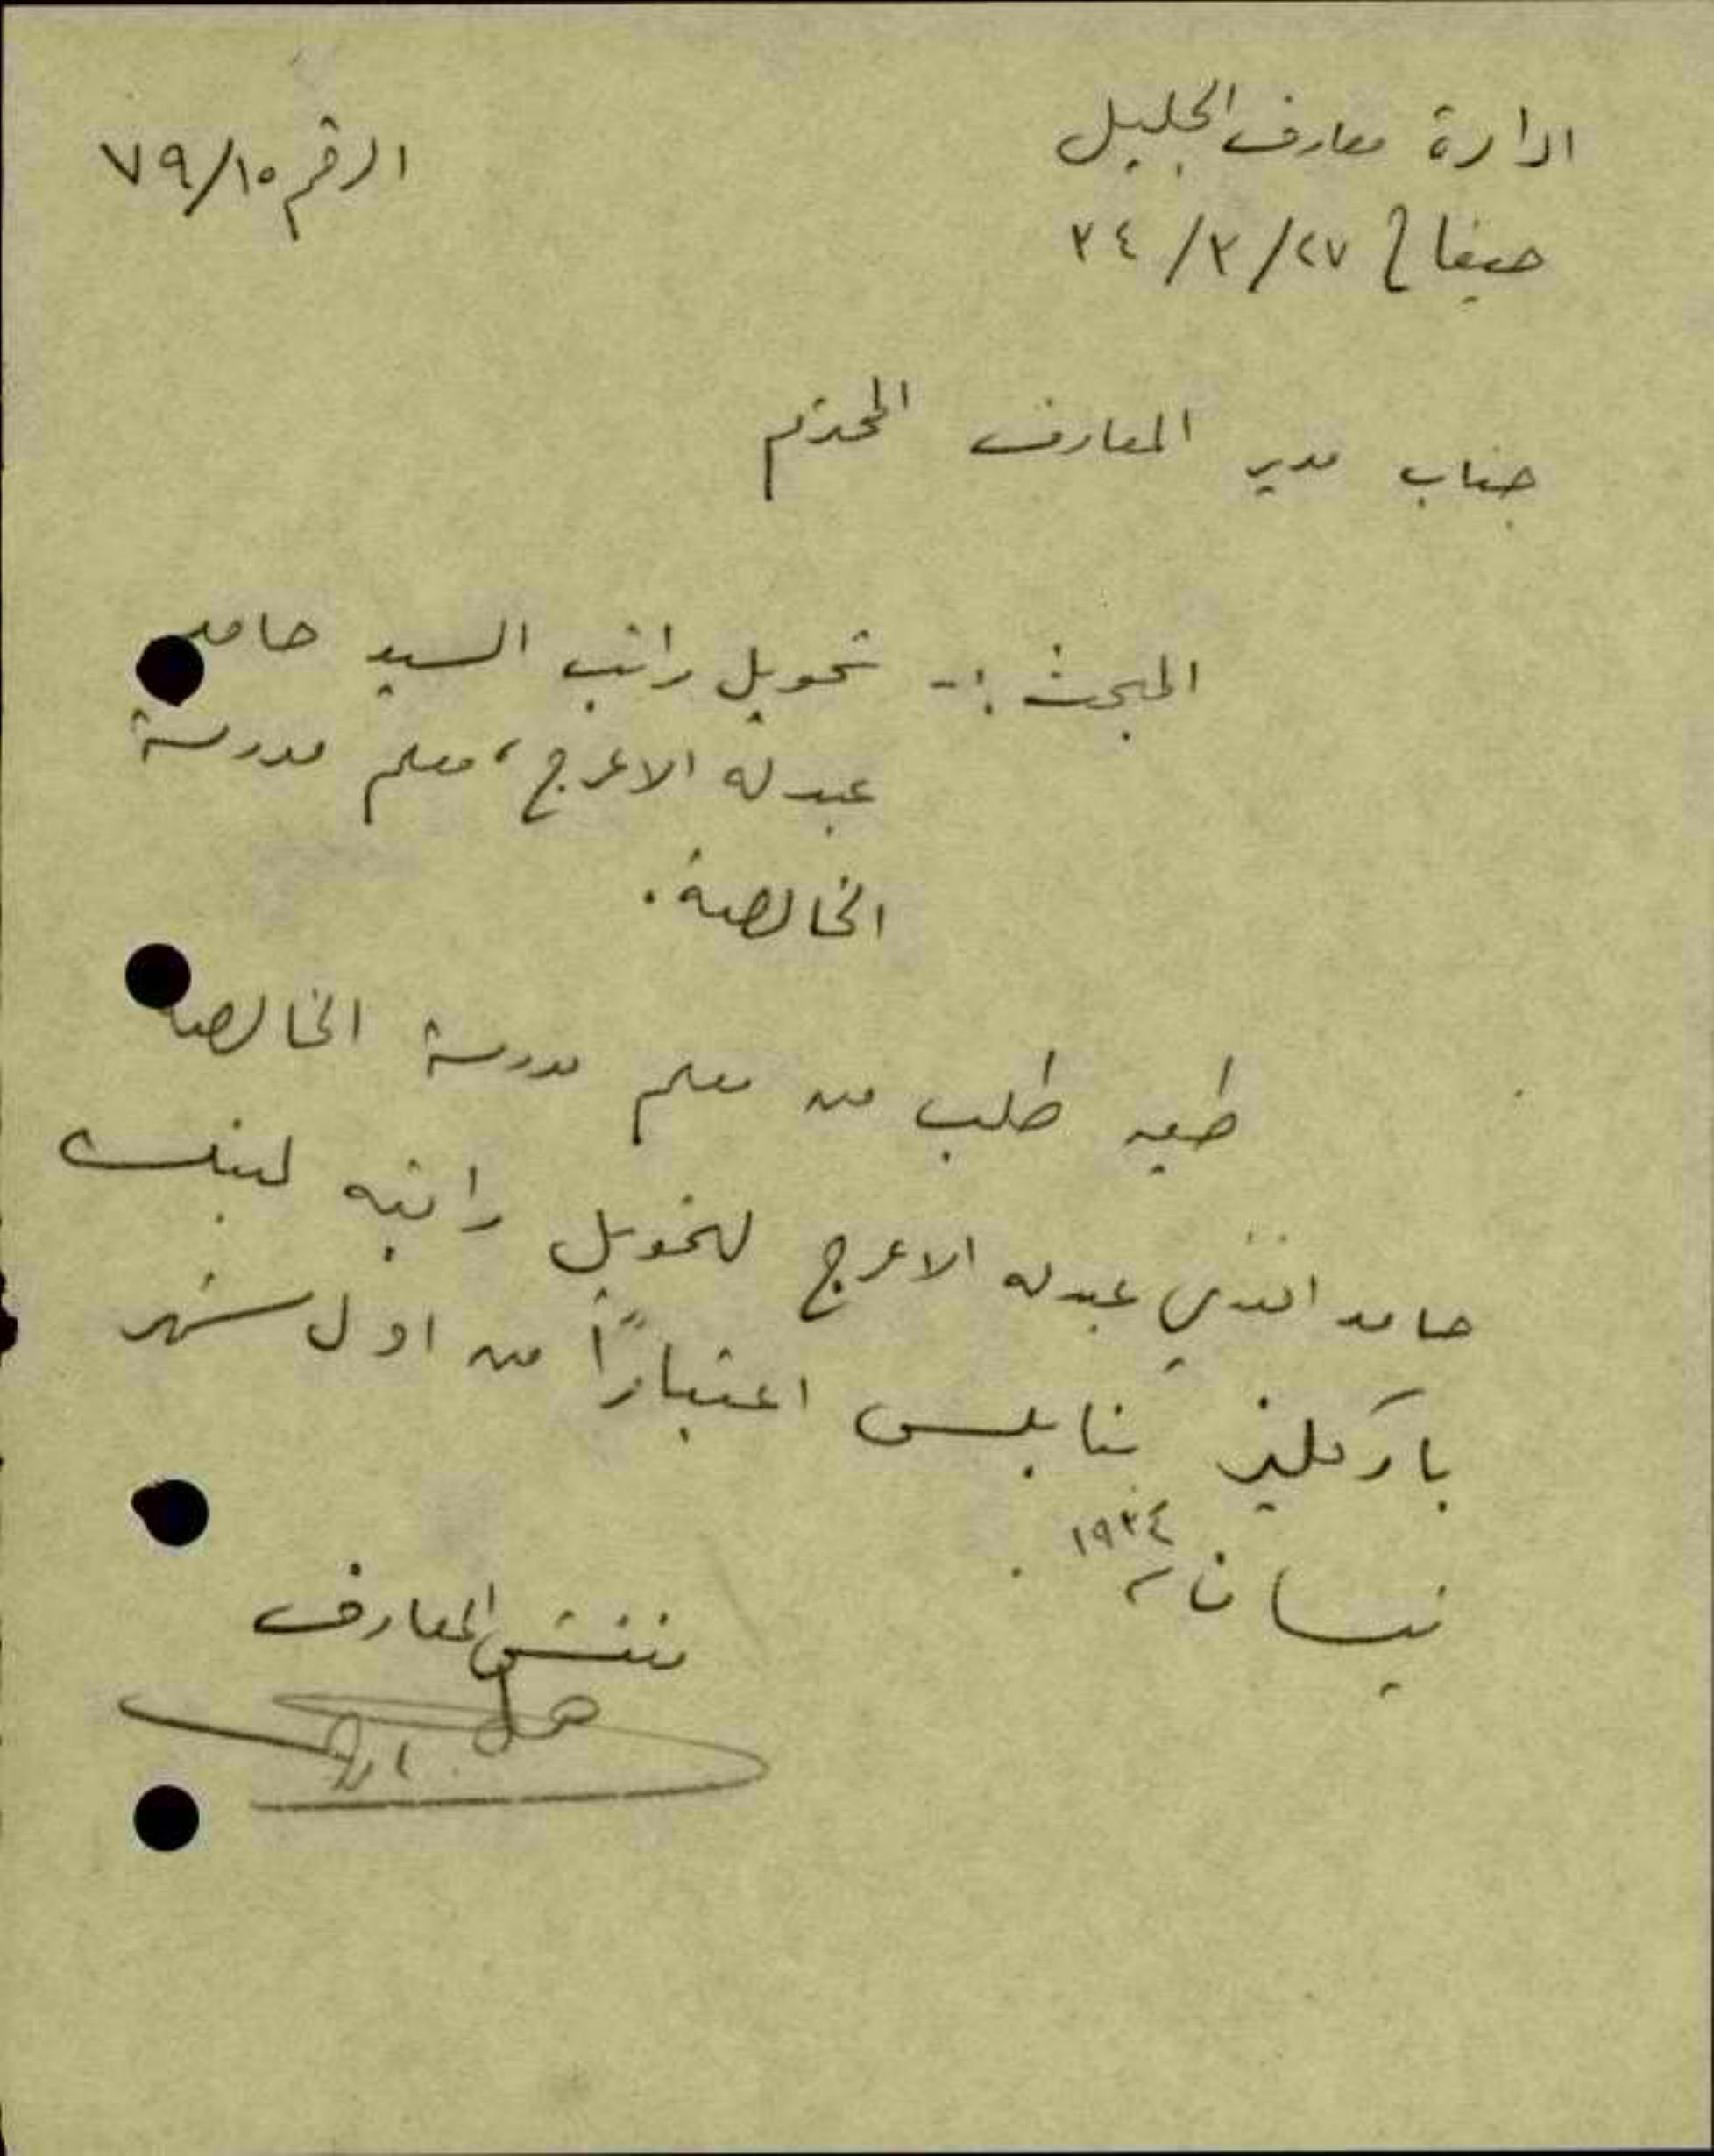 ادارة معارف الجليل
الرقم ٧٩/١٥
حيفا في ٢٧/٣/٣٤
جناب مدير المعارف المحترم
المبحث :- تحويل راتب السيد حامد
عبدله الاعرج، معلم مدرسة
الخالصة.
طيه طلب من معلم مدرسة الخالصة
حامد افندي عبدله الاعرج لتحويل راتبه لبنك
باركليز بنابلس اعتباراً من اول شهر
نيسان سنة ١٩٣٤.
مفتش المعارف